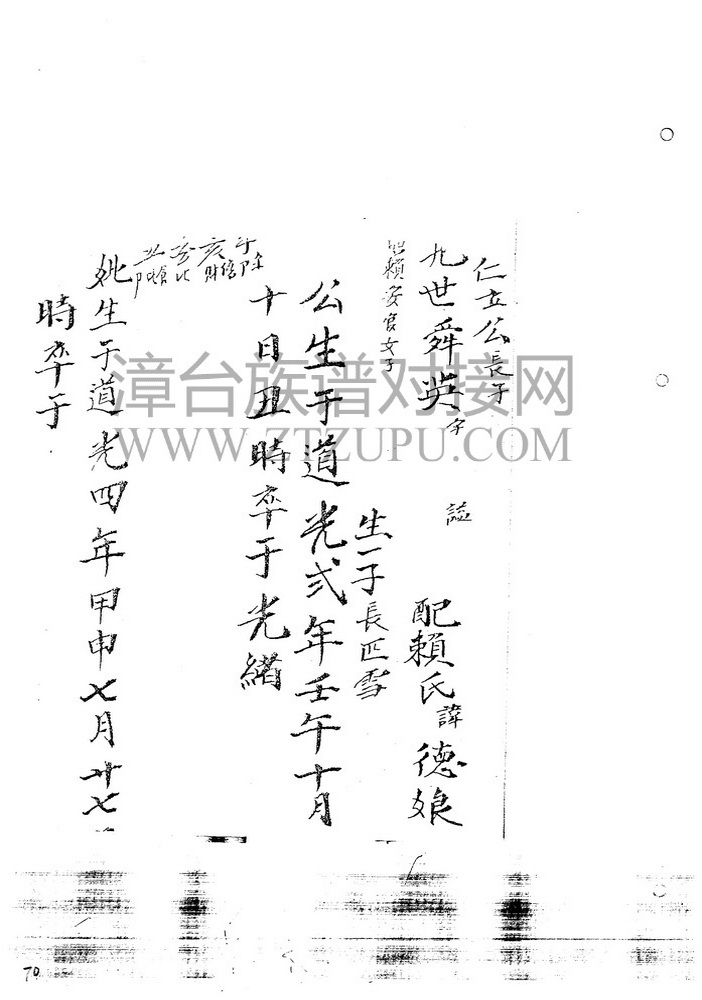 仁立公長子
九世舜英 字 諡 配賴氏諱德娘
賴安官女子
生一子長匹雪
公生于道光弍年壬午十月
十日丑時卒于光緒
妣生于道光四年甲申七月廿七
時卒于
漳台族谱对接网
WWW.ZTZUPU.COM
70